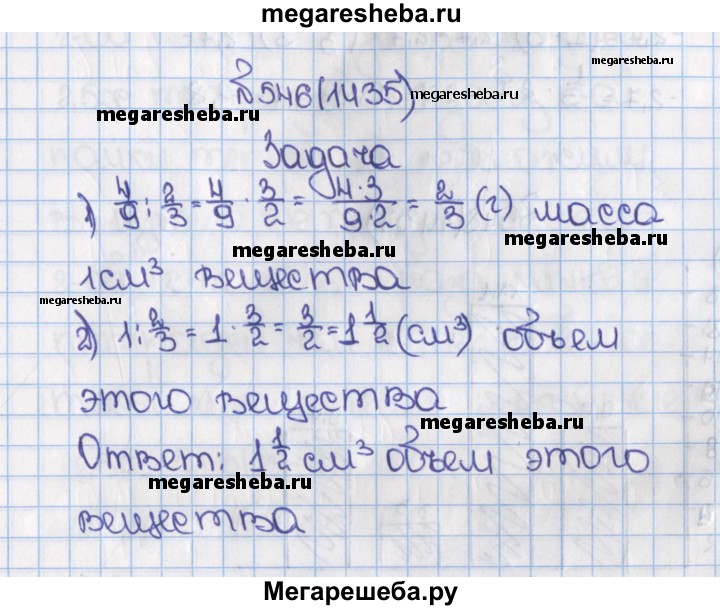 megaresheba.ru
megaresheba.ru
№546(1435)
megaresheba.ru
megaresheba.ru
Задача
1) 4/9 : 2/3 = 4/9 · 3/2 = 4·3/9·2 = 2/3 (г) масса
megaresheba.ru
megaresheba.ru
1 см³ вещества
megaresheba.ru
2) 1 : 2/3 = 1 · 3/2 = 3/2 = 1 1/2 (см³) объем
этого вещества
megaresheba.ru
Ответ: 1 1/2 см³ объем этого
megaresheba.ru
вещества
Мегарешеба.ру